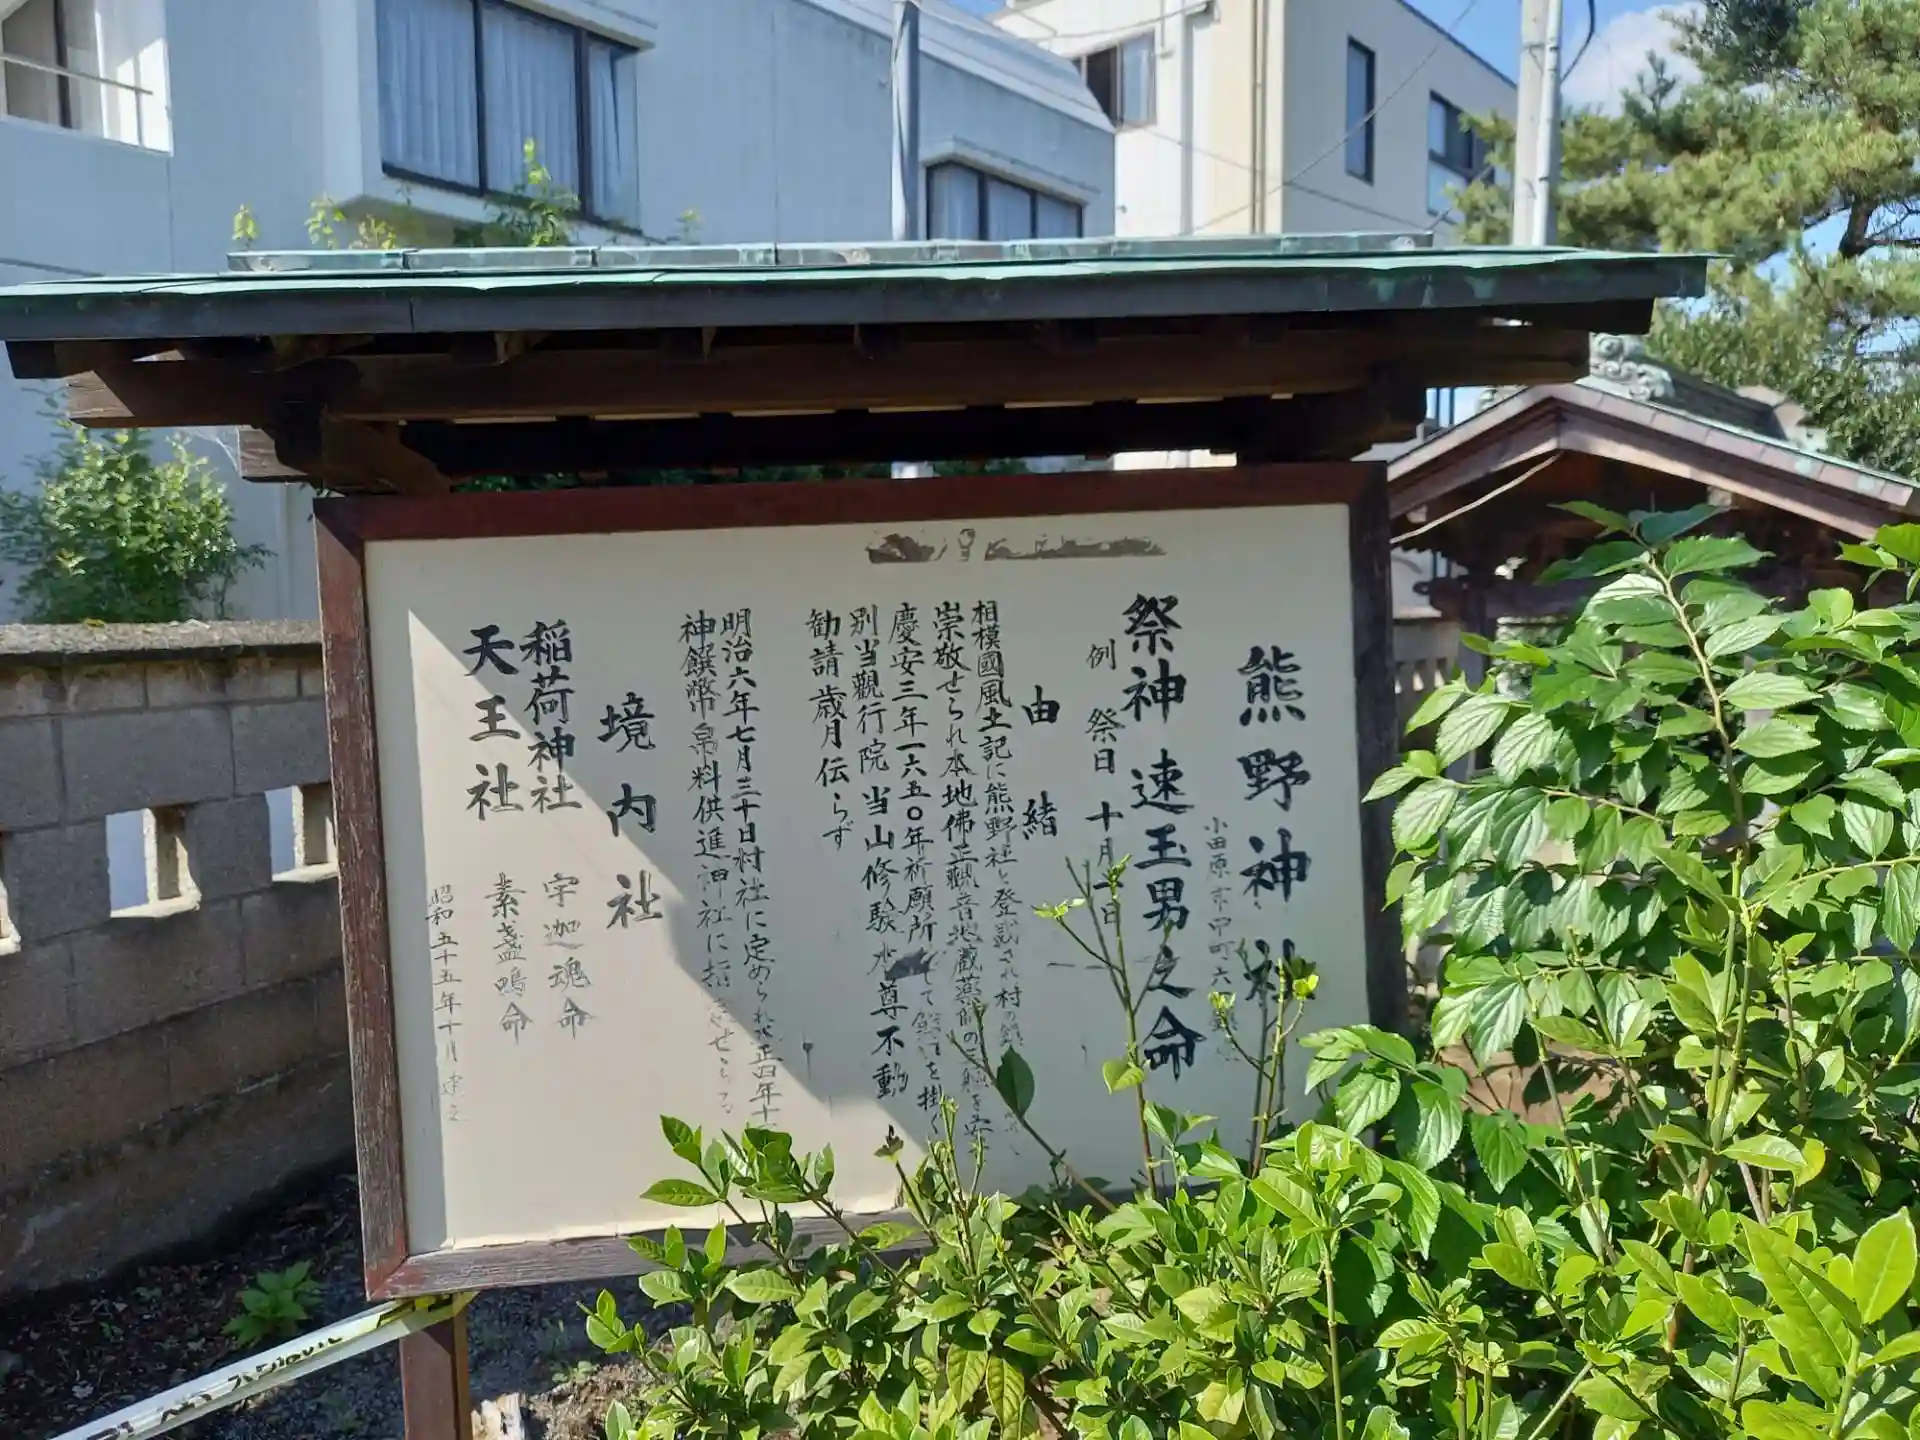 熊野神社
小田原市中町六
祭神 速玉男之命
例祭日 十月十日
由緒
相模國風土記に熊野社と登載され村の鎮
崇敬せられ本地佛正観音地蔵薬師の
慶安三年一六五〇年祈願所として を掛く
別当觀行院当山修験 尊不動
勧請歳月伝らず
明治六年七月三十日村社に定められ 正四年十
神饌幣帛料供進神社に指定せらる
境内社
稲荷神社 宇迦魂命
天王社 素盞鳴命
昭和五十五年十月建之